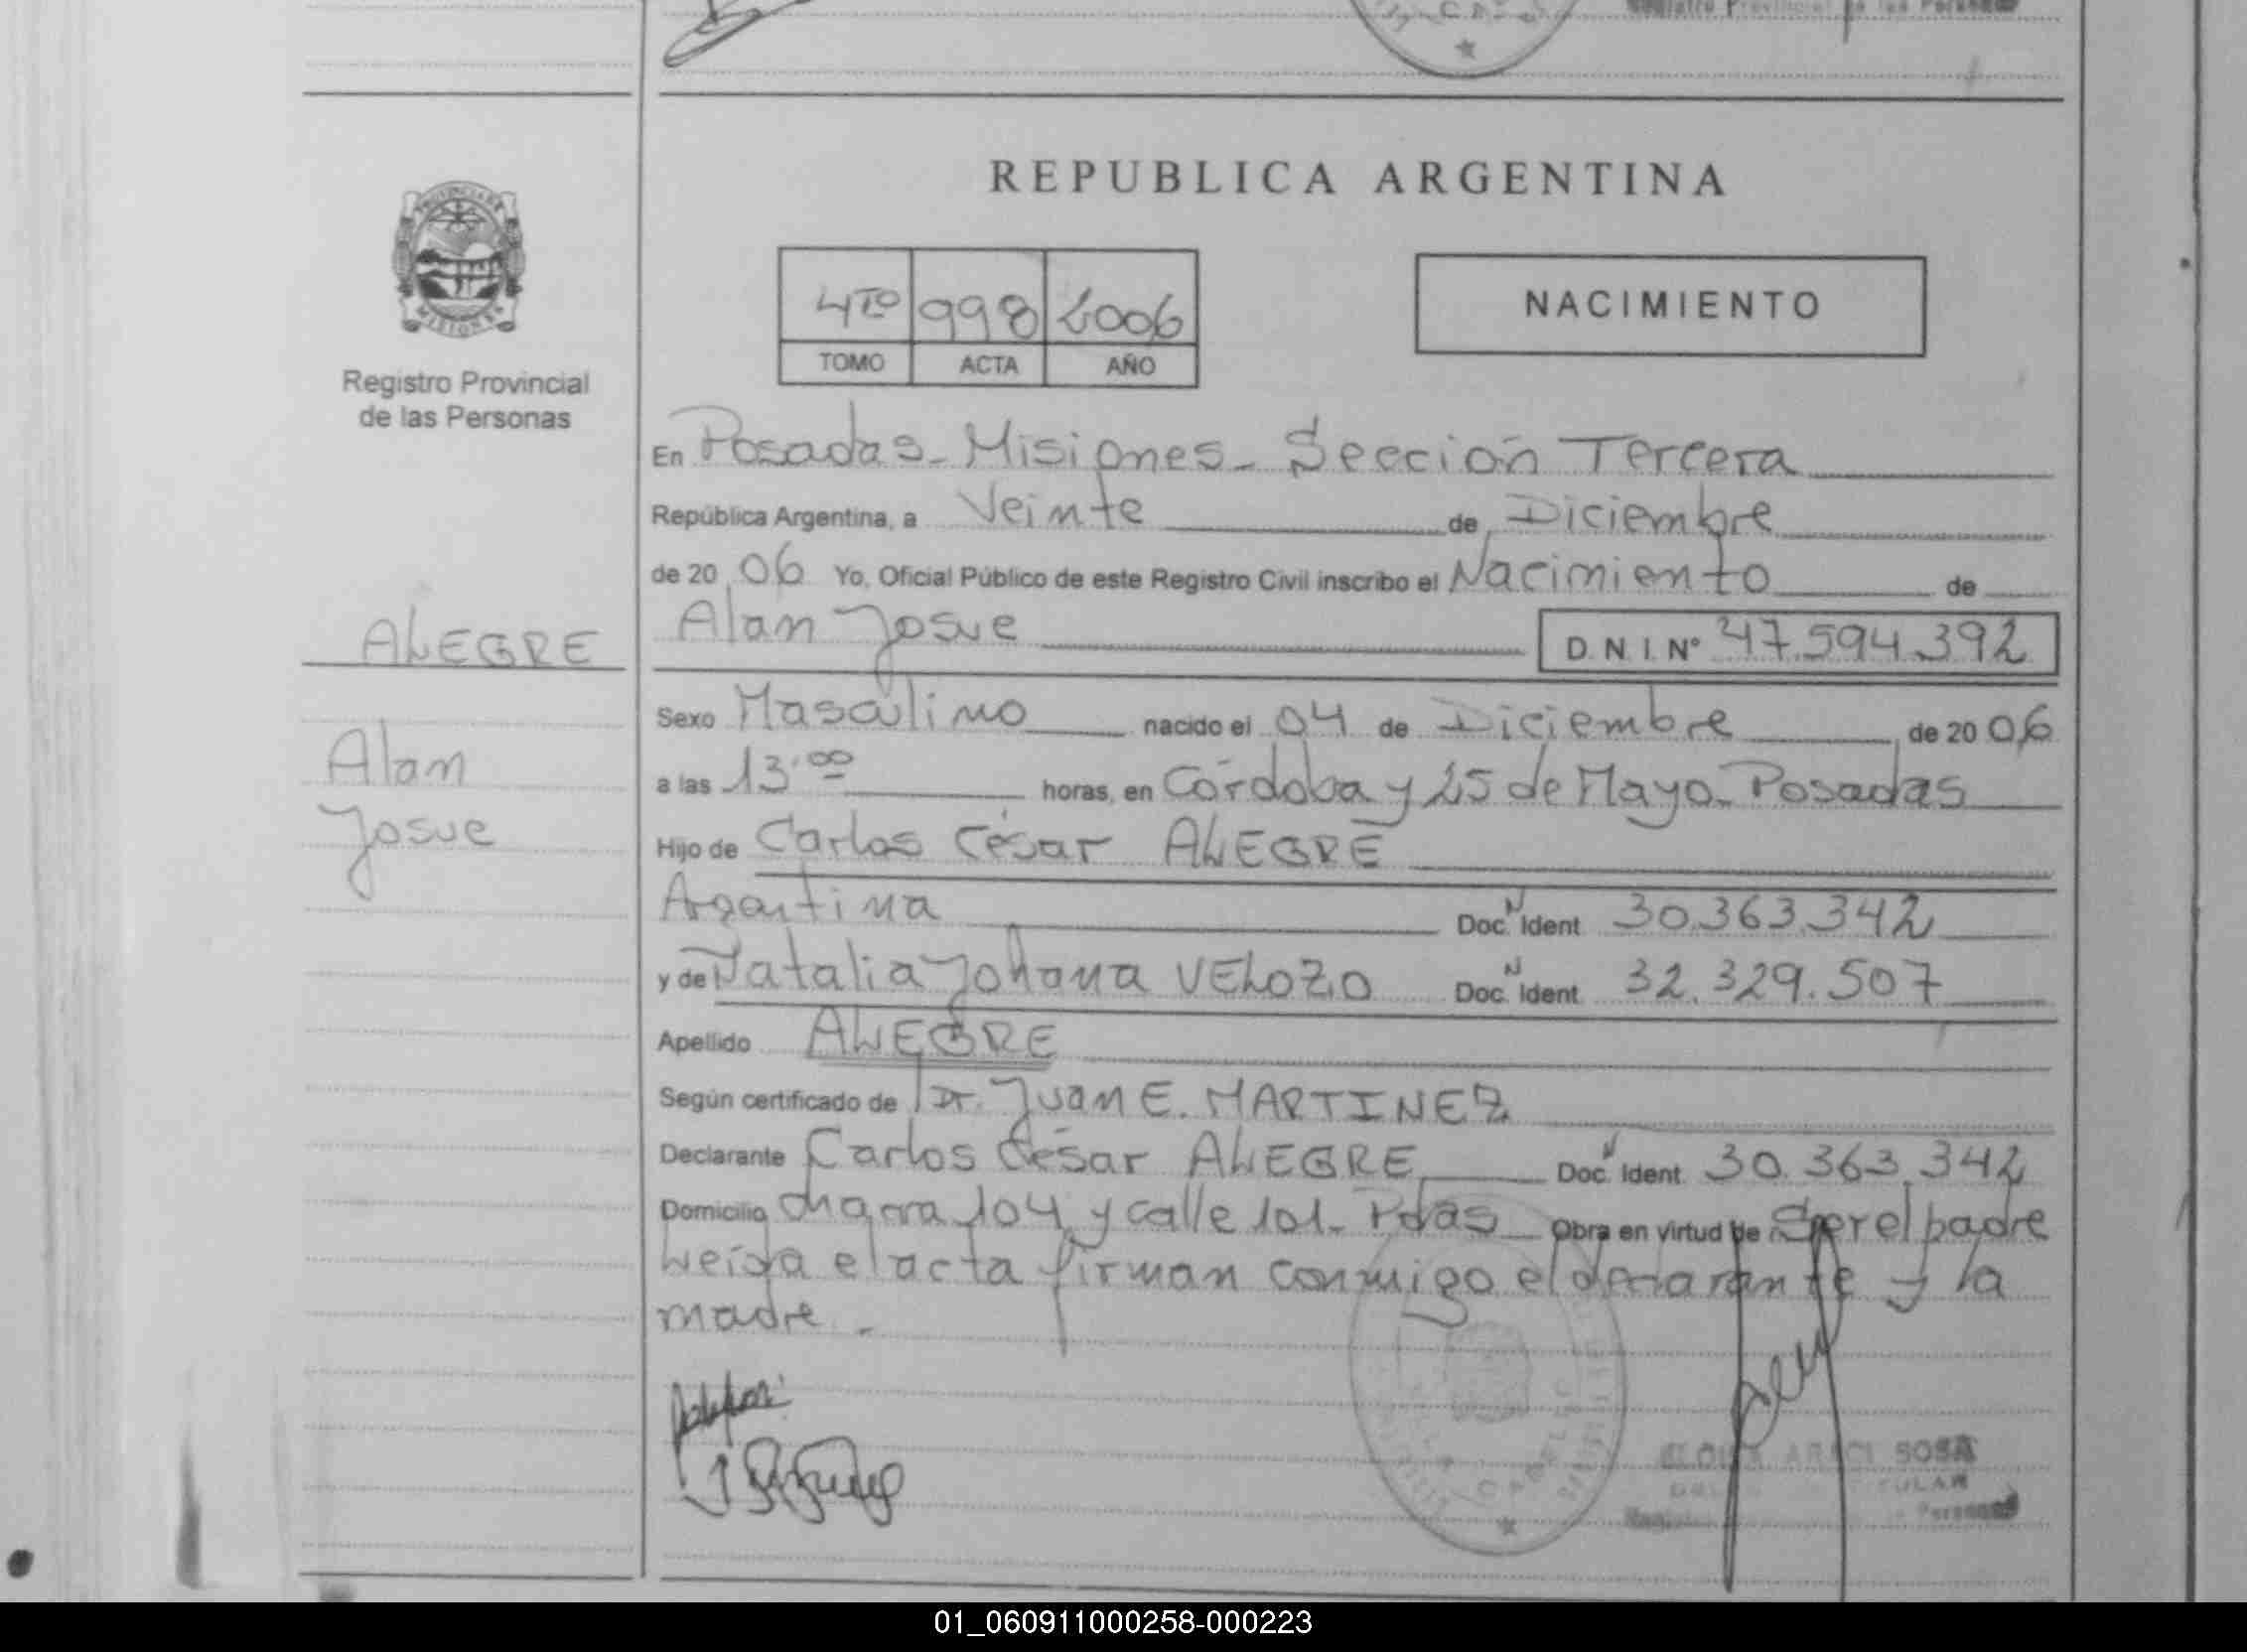 Registro Provincial de las Personas
REPUBLICA ARGENTINA
PROVINCIA DE
MISIONES
Registro Provincial
de las Personas
4TO 998 2006
TOMO ACTA AÑO
NACIMIENTO
En Posadas - Misiones - Sección Tercera
República Argentina, a Veinte de Diciembre
de 20 06 Yo, Oficial Público de este Registro Civil inscribo el Nacimiento de
ALEGRE
Alan Josue D.N.I. Nº 47.594.392
Sexo Masculino nacido el 04 de Diciembre de 20 06
Alan
a las 13:00 horas, en Córdoba y 25 de Mayo - Posadas
Josue
Hijo de Carlos César ALEGRE
Argentina Doc. N Ident 30.363.342
y de Natalia Johana VELOZO Doc. N Ident 32.329.507
Apellido ALEGRE
Según certificado de Dr. Juan E. MARTINEZ
Declarante Carlos César ALEGRE Doc. N Ident. 30.363.342
Domicilio chacra 104 y calle 101 - Pdas Obra en virtud de Ser el padre
Leída el acta firman conmigo el declarante y la
madre -
SOSA
01_060911000258-000223